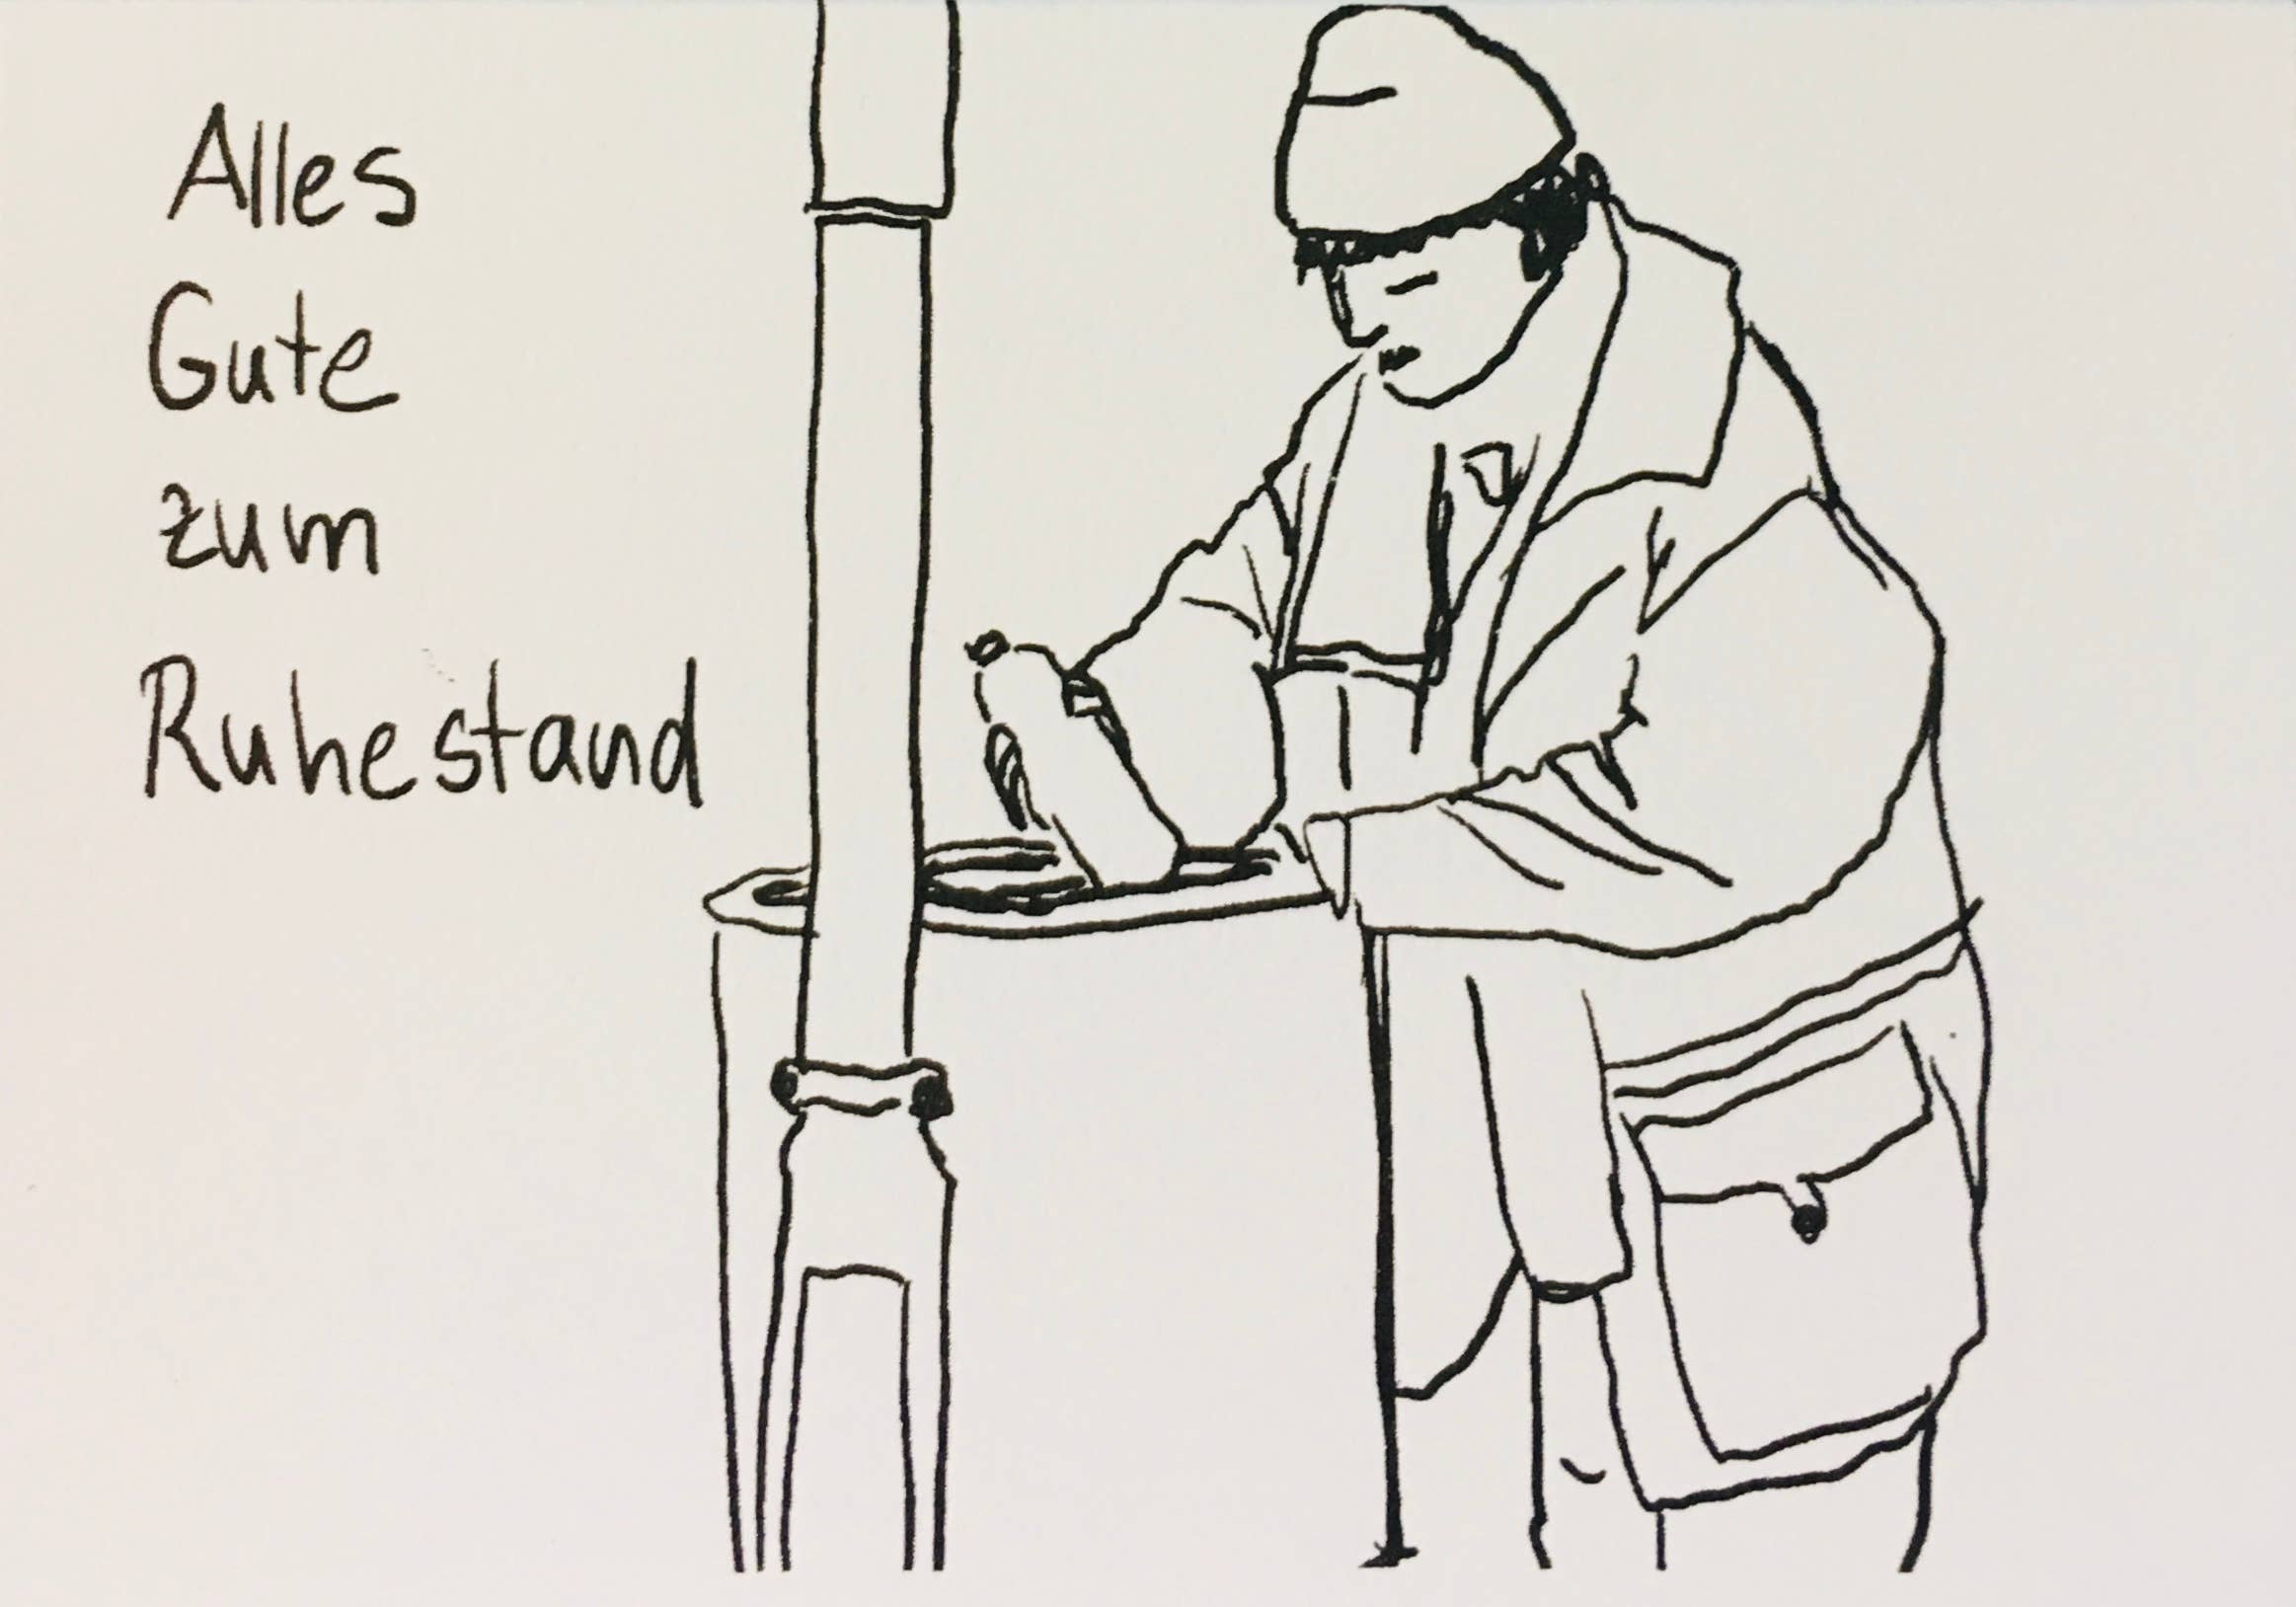 Alles
Gute
zum
Ruhestand